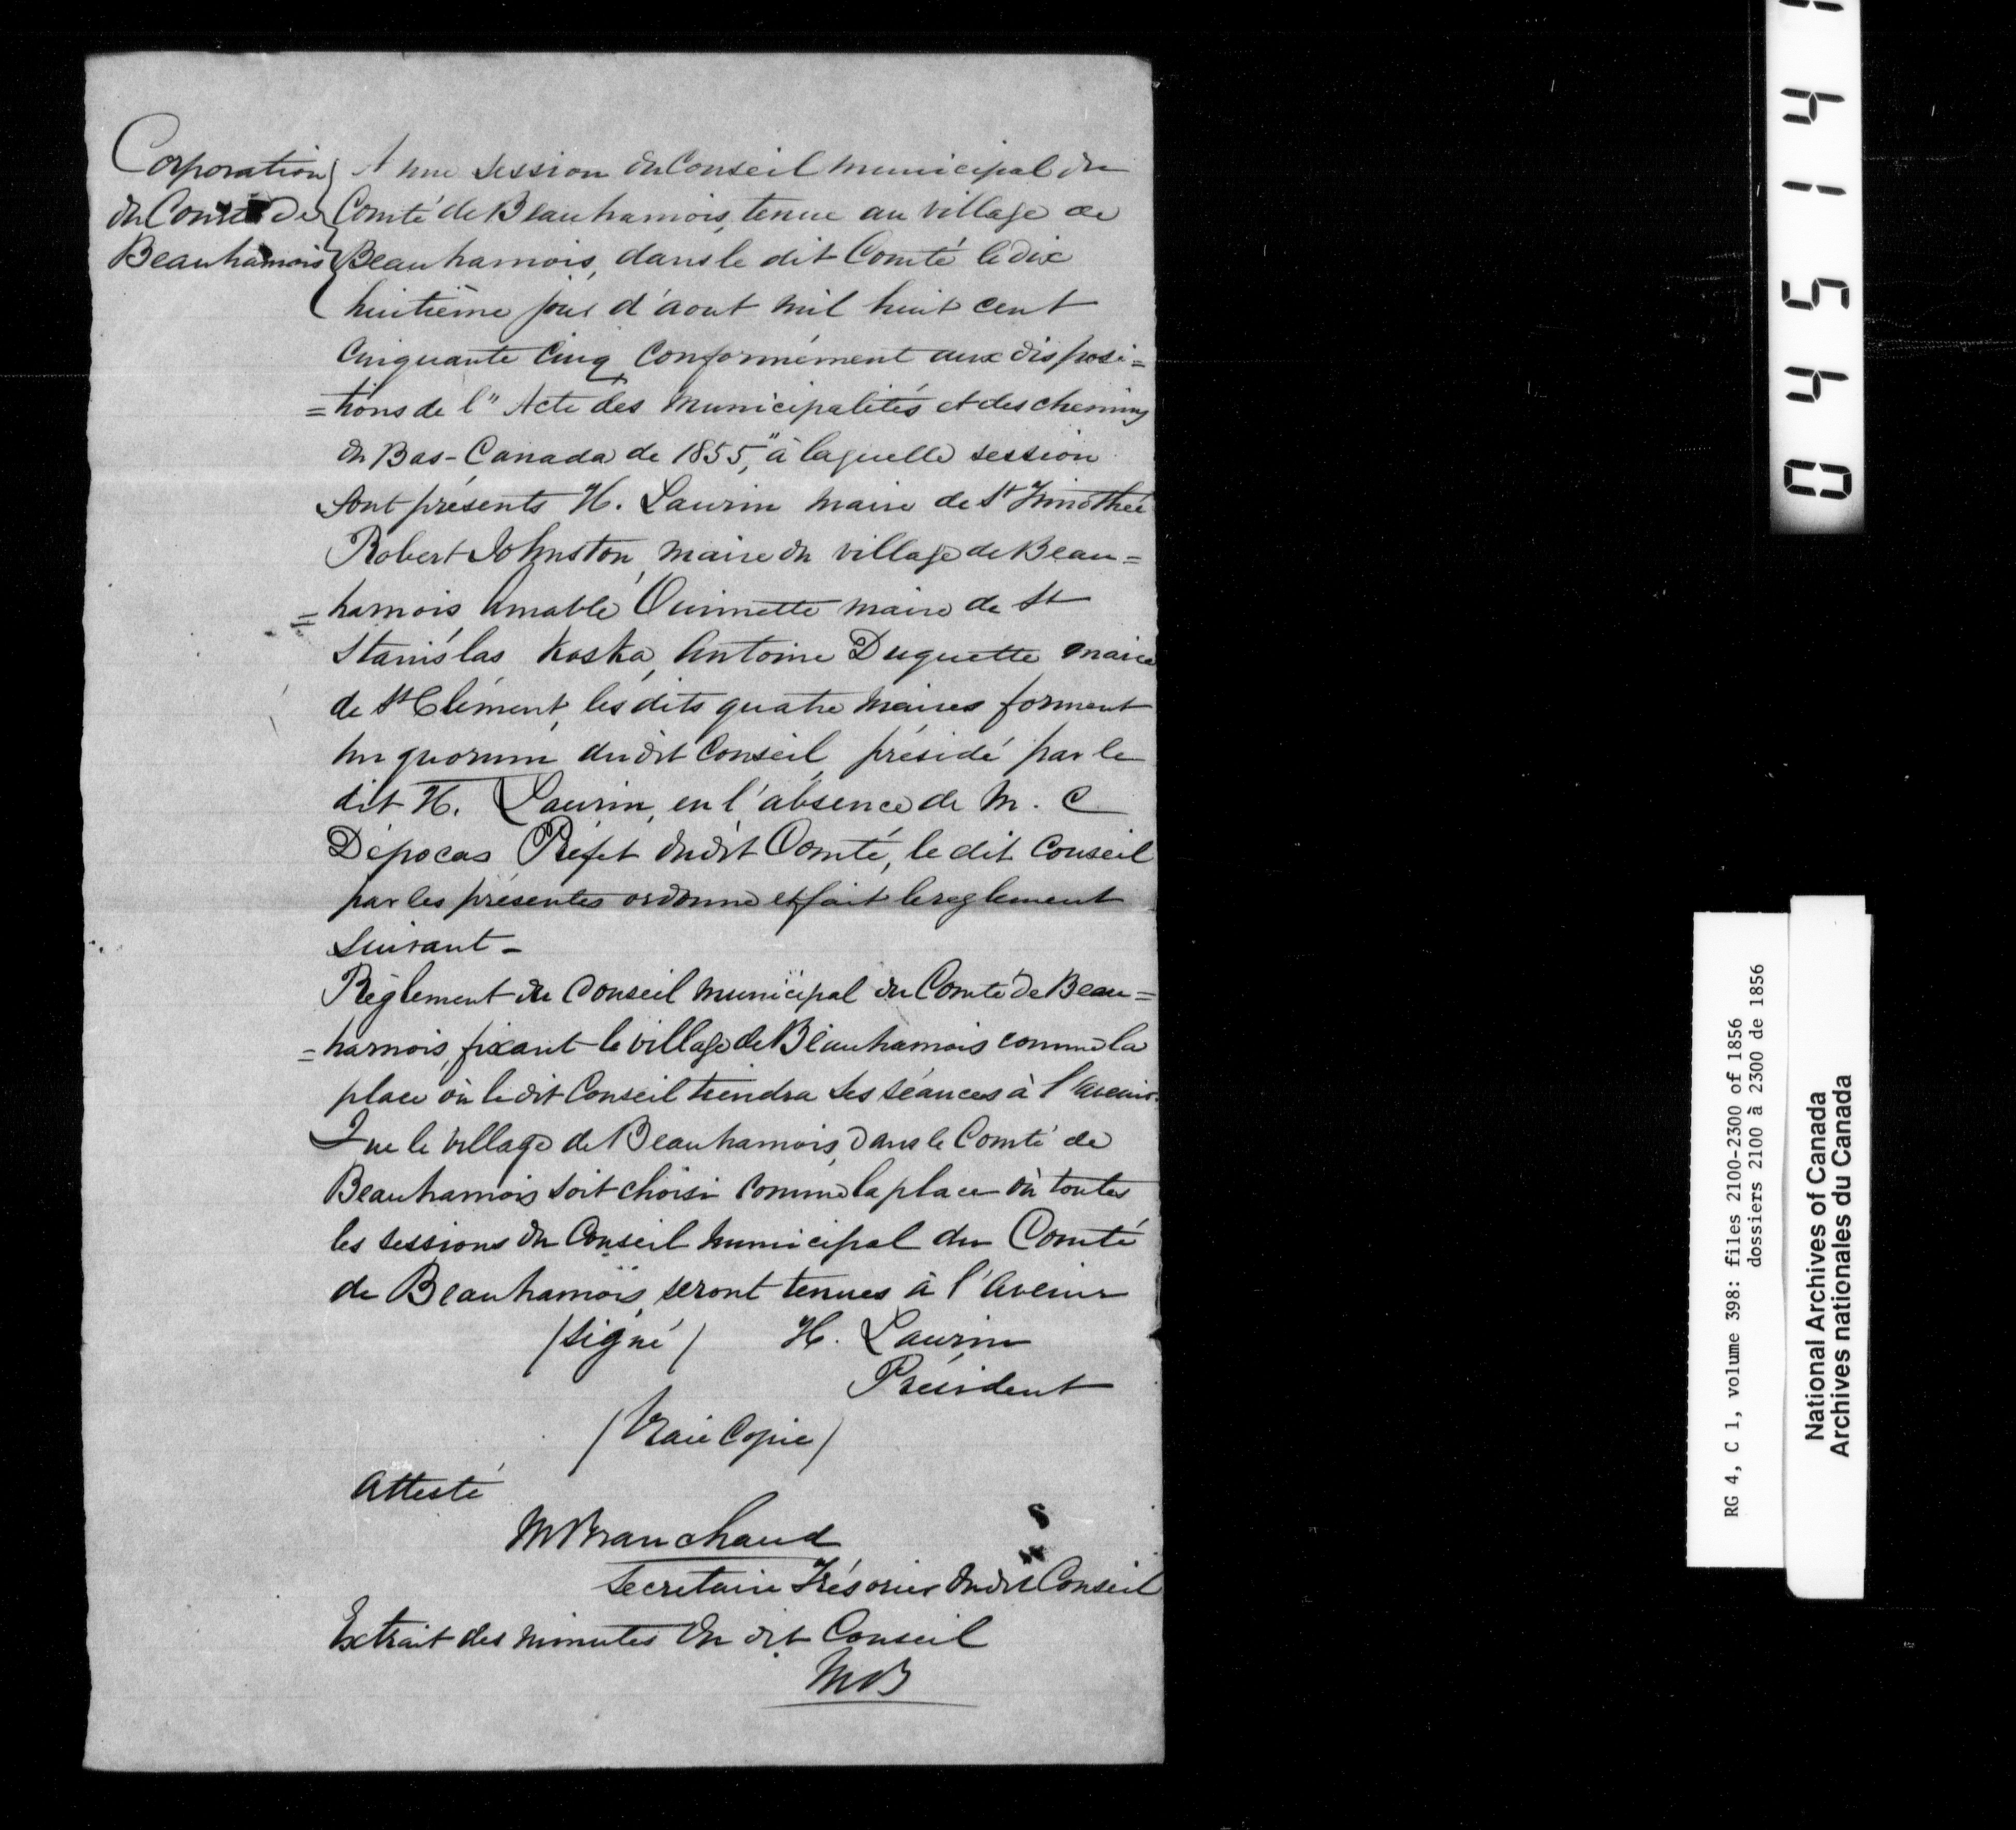 Corporation
du Comté de
Beauharnois
A une session du Conseil municipal du
Comté de Beauharnois, tenue au village de
Beauharnois, dans le dit Comté le dix
huitième jour d'aout mil huit cent
Cinquante Cinq Conformément aux disposi=
=tions de l'" Acte des Municipalités et des chemins
du Bas-Canada de 1855," à laquelle session
sont présents H. Laurin maire de St Timothée
Robert Johnston, maire du village de Beau=
=harnois, Amable Ouimette maire de St
Stanislas Koska, Antoine Duquette maire
de St Clément, les dits quatre maires forment
un quorum du dit Conseil, présidé par le
dit H. Laurin, en l'absence de M. C
Dépocas Préfet du dit Comté, le dit Conseil
par les présentes ordonne et fait le reglement
suivant -
Règlement du Conseil municipal du Comté de Beau=
=harnois, fixant le village de Beauharnois comme la
place où le dit Conseil tiendra ses séances à l'avenir.
Que le village de Beauharnois, dans le Comté de
Beauharnois soit choisi comme la place où toutes
les sessions du Conseil municipal du Comté
de Beauharnois, seront tenues à l'avenir
/signé/ H. Laurin
Président
/Vraie Copie/
Attesté
M Branchaud
Secretaire Trésorier du dit Conseil
Extrait des minutes du dit Conseil
MB
04514
RG 4, C 1, volume 398: files 2100-2300 of 1856
dossiers 2100 à 2300 de 1856
National Archives of Canada
Archives nationales du Canada